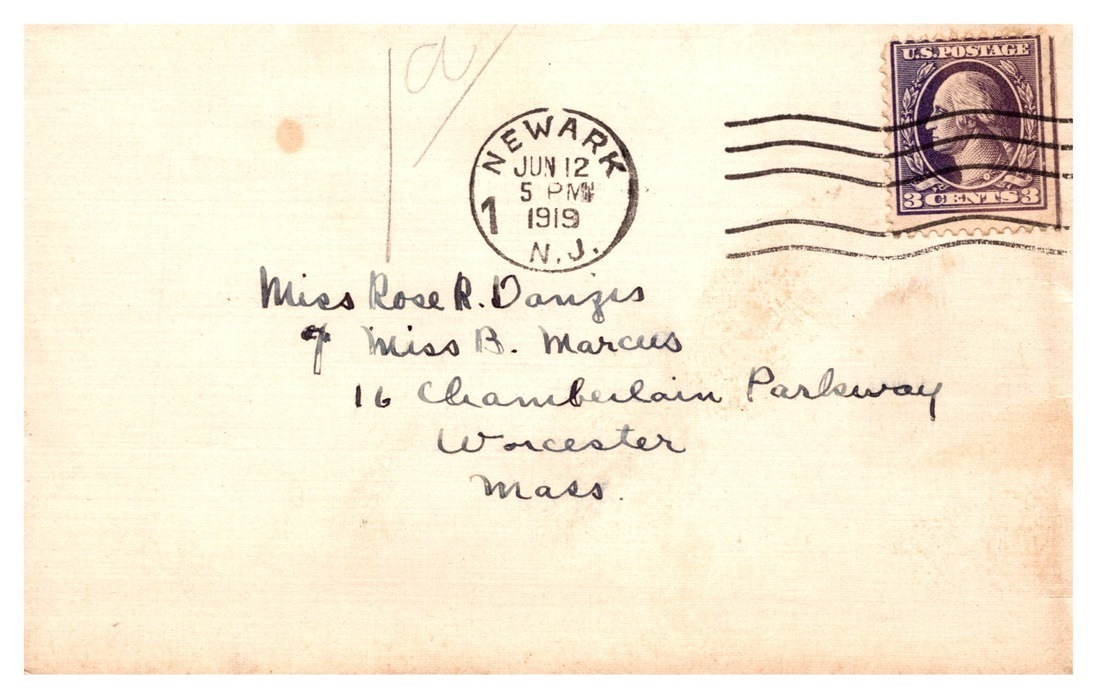 a
U.S. POSTAGE
3 CENTS 3
NEWARK
JUN 12
5 PM
1919
1
N.J.
Miss Rose R. Danzis
℅ Miss B. Marcus
16 Chamberlain Parkway
Worcester
Mass.